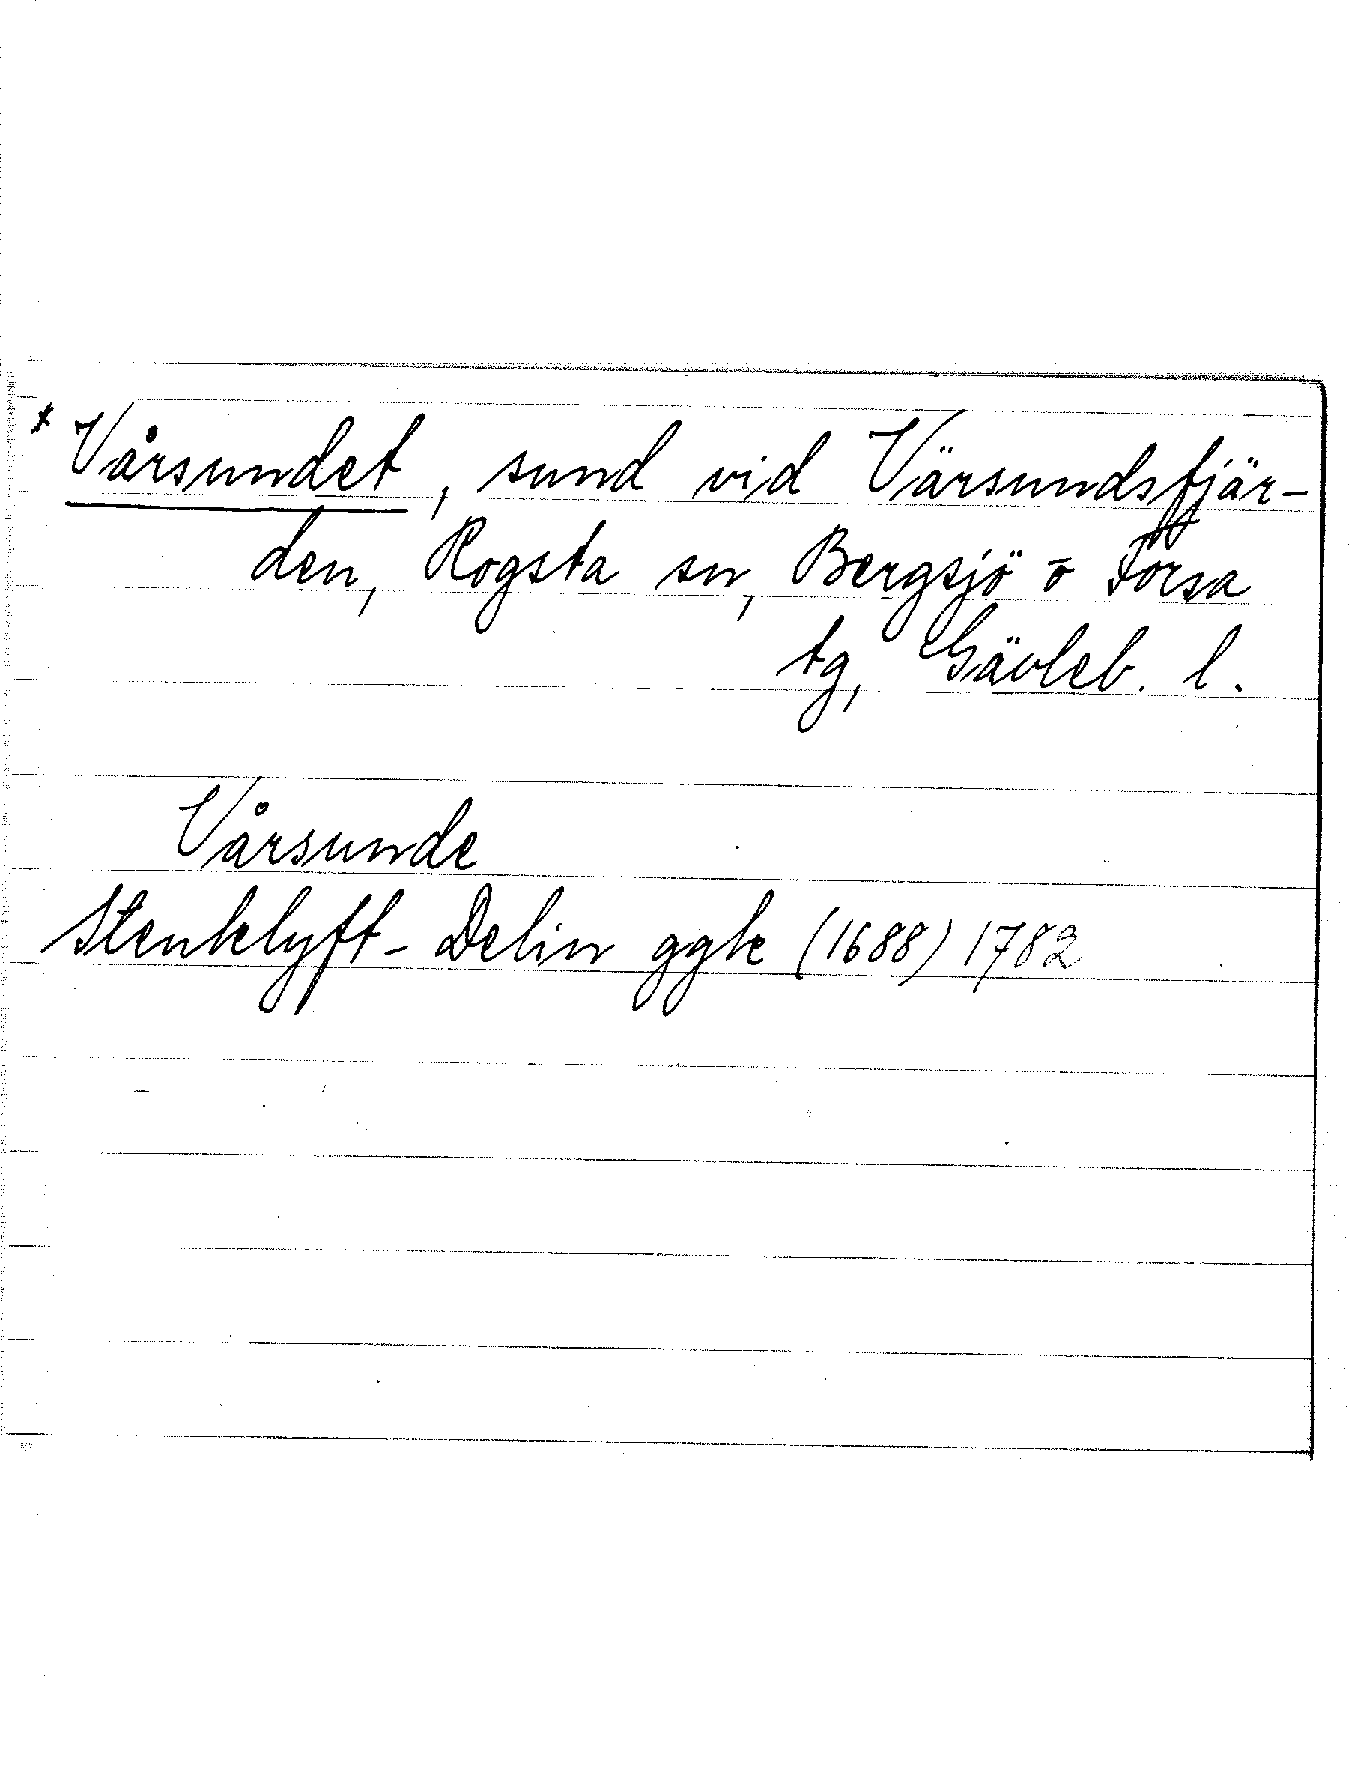 * Vårsundet, sund vid Värsundsfjär-
den, Rogsta sn, Bergsjö o Forsa
tg, Gävleb. l.
Vårsunde
Stenklyft-Delin ggk (1688) 1782